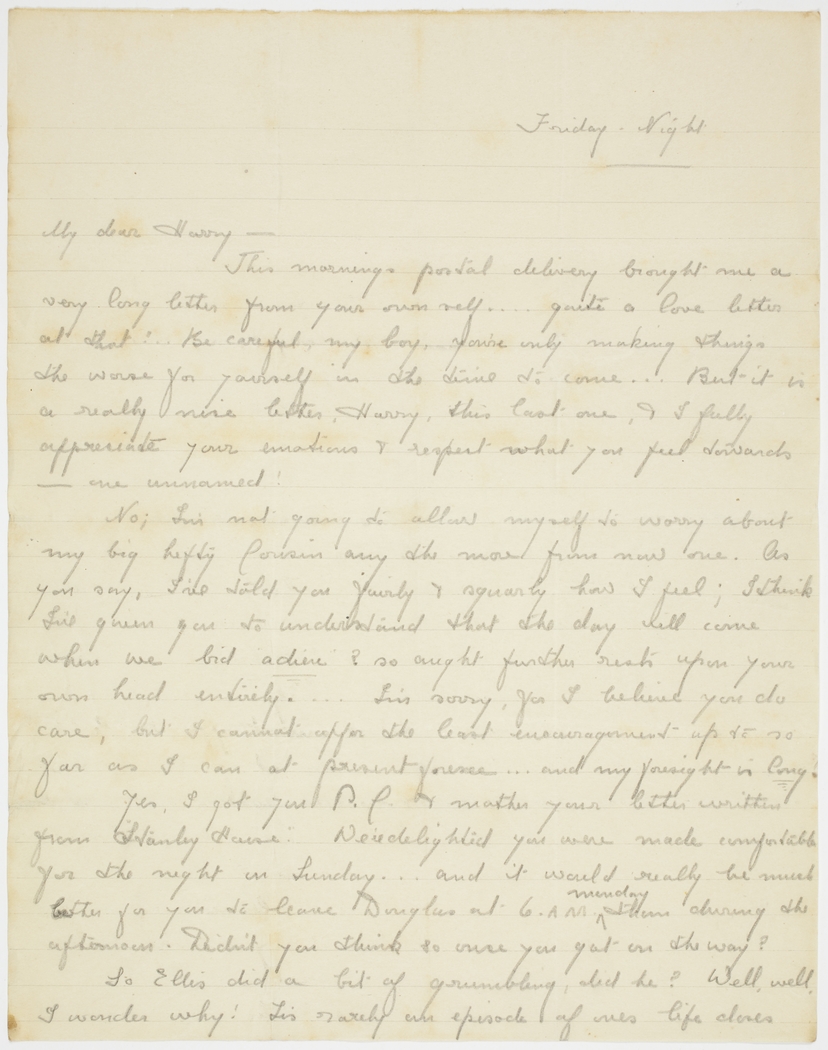 Friday - Night
My dear Harry —
This mornings postal delivery brought me a
very long letter from your own self.... quite a love letter
at that! .. Be careful, my boy, you're only making things
the worse for yourself in the time to come... But it is
a really nice letter, Harry, this last one, & I fully
appreciate your emotions & respect what you feel towards
— one unnamed!
No; I'm not going to allow myself to worry about
my big hefty Cousin any the more from now one. As
you say, I've told you fairly & squarly how I feel; I think
I've given you to understand that the day will come
when we bid adieu? so aught further rests upon your
own head entirely. .... I'm sorry, for I believe you do
care, but I cannot offer the least encouragement up to so
far as I can at present foresee... and my foresight is long!
Yes, I got you P. C. & mother your letter written
from Stanley House! delighted you were made comfortable
for the night on Sunday... and it would really be much
better for you to leave Douglas at 6. A.M. monday than during the
afternoon. Didn't you think so once you got on the way?
So Ellis did a bit of grumbling, did he? Well, well,
I wonder why! episode of ones life closes